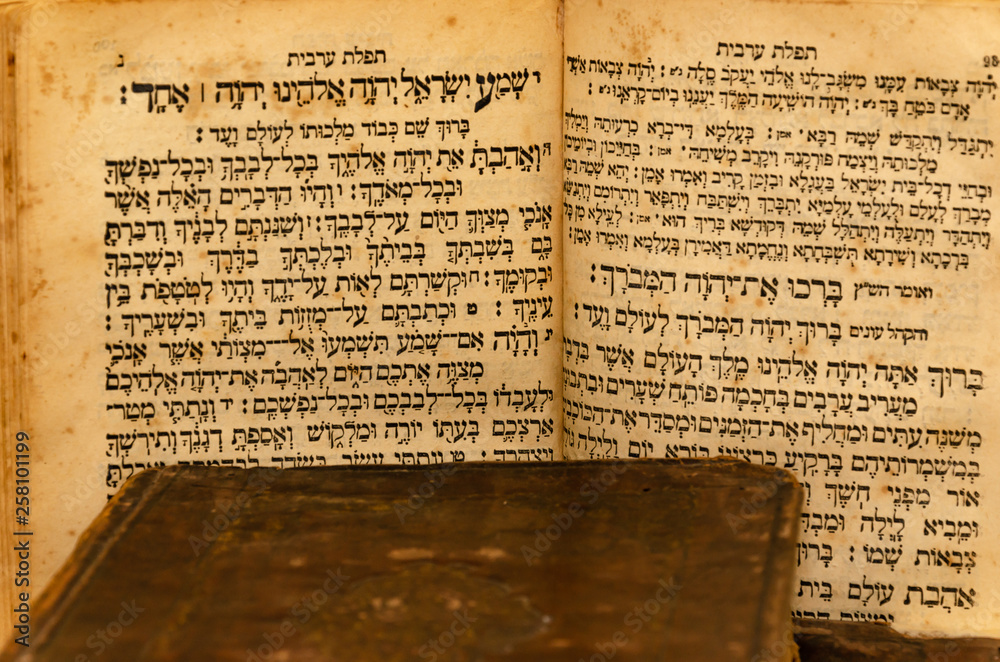 תפלת ערבית
יְהֹוָה צְבָאוֹת עִמָּנוּ מִשְׂגָּב־לָנוּ אֱלֹהֵי יַעֲקֹב סֶלָה ג״פ: יְהֹוָה צְבָאוֹת אַשְׁרֵי
אָדָם בֹּטֵחַ בָּךְ ג״פ: יְהֹוָה הוֹשִׁיעָה הַמֶּלֶךְ יַעֲנֵנוּ בְיוֹם־קָרְאֵנוּ:
יִתְגַּדַּל וְיִתְקַדַּשׁ שְׁמֵהּ רַבָּא אמן: בְּעָלְמָא דִּי־בְרָא כִרְעוּתֵהּ וְיַמְלִיךְ
מַלְכוּתֵהּ וְיַצְמַח פּוּרְקָנֵהּ וִיקָרֵב מְשִׁיחֵהּ אמן: בְּחַיֵּיכוֹן וּבְיוֹמֵיכוֹן
וּבְחַיֵּי דְכָל־בֵּית יִשְׂרָאֵל בַּעֲגָלָא וּבִזְמַן קָרִיב וְאִמְרוּ אָמֵן: יְהֵא שְׁמֵהּ
מְבָרַךְ לְעָלַם וּלְעָלְמֵי עָלְמַיָּא יִתְבָּרַךְ וְיִשְׁתַּבַּח וְיִתְפָּאַר וְיִתְרוֹמַם
וְיִתְהַדָּר וְיִתְעַלֶּה וְיִתְהַלָּל שְׁמֵהּ דְּקוּדְשָׁא בְּרִיךְ הוּא אמן: לְעֵילָּא מִן
בִּרְכָתָא וְשִׁירָתָא תֻּשְׁבְּחָתָא וְנֶחֱמָתָא דַּאֲמִירָן בְּעָלְמָא וְאִמְרוּ אָמֵן:
ואומר הש״ץ בָּרְכוּ אֶת־יְהֹוָה הַמְבֹרָךְ:
והקהל עונים בָּרוּךְ יְהֹוָה הַמְבֹרָךְ לְעוֹלָם וָעֶד:
בָּרוּךְ אַתָּה יְהֹוָה אֱלֹהֵינוּ מֶלֶךְ הָעוֹלָם אֲשֶׁר בִּדְבָרוֹ
מַעֲרִיב עֲרָבִים בְּחָכְמָה פּוֹתֵחַ שְׁעָרִים
מְשַׁנֶּה עִתִּים וּמַחֲלִיף אֶת־הַזְּמַנִּים וּמְסַדֵּר אֶת־הַכּוֹכָבִים
בְּמִשְׁמְרוֹתֵיהֶם בָּרָקִיעַ כִּרְצוֹנוֹ בּוֹרֵא יוֹם וָלַיְלָה
אוֹר מִפְּנֵי חֹשֶׁךְ
וּמֵבִיא לָיְלָה
צְבָאוֹת שְׁמוֹ: בָּרוּךְ
אַהֲבַת עוֹלָם בֵּית
תפלת ערבית נ
י שְׁמַע יִשְׂרָאֵל יְהֹוָה אֱלֹהֵינוּ יְהֹוָה ׀ אֶחָד:
בָּרוּךְ שֵׁם כְּבוֹד מַלְכוּתוֹ לְעוֹלָם וָעֶד:
ה וְאָהַבְתָּ אֵת יְהֹוָה אֱלֹהֶיךָ בְּכָל־לְבָבְךָ וּבְכָל־נַפְשְׁךָ
וּבְכָל־מְאֹדֶךָ: ו וְהָיוּ הַדְּבָרִים הָאֵלֶּה אֲשֶׁר
אָנֹכִי מְצַוְּךָ הַיּוֹם עַל־לְבָבֶךָ: ז וְשִׁנַּנְתָּם לְבָנֶיךָ וְדִבַּרְתָּ
בָּם בְּשִׁבְתְּךָ בְּבֵיתֶךָ וּבְלֶכְתְּךָ בַדֶּרֶךְ וּבְשָׁכְבְּךָ
וּבְקוּמֶךָ: ח וּקְשַׁרְתָּם לְאוֹת עַל־יָדֶךָ וְהָיוּ לְטֹטָפֹת בֵּין
עֵינֶיךָ: ט וּכְתַבְתָּם עַל־מְזֻזוֹת בֵּיתֶךָ וּבִשְׁעָרֶיךָ:
יג וְהָיָה אִם־שָׁמֹעַ תִּשְׁמְעוּ אֶל־מִצְוֹתַי אֲשֶׁר אָנֹכִי
מְצַוֶּה אֶתְכֶם הַיּוֹם לְאַהֲבָה אֶת־יְהֹוָה אֱלֹהֵיכֶם
וּלְעָבְדוֹ בְּכָל־לְבַבְכֶם וּבְכָל־נַפְשְׁכֶם: יד וְנָתַתִּי מְטַר־
אַרְצְכֶם בְּעִתּוֹ יוֹרֶה וּמַלְקוֹשׁ וְאָסַפְתָּ דְגָנֶךָ וְתִירֹשְׁךָ
וְיִצְהָרֶךָ: טו וְנָתַתִּי עֵשֶׂב בְּשָׂדְךָ לִבְהֶמְתֶּךָ וְאָכַלְתָּ
Adobe Stock | #258101199